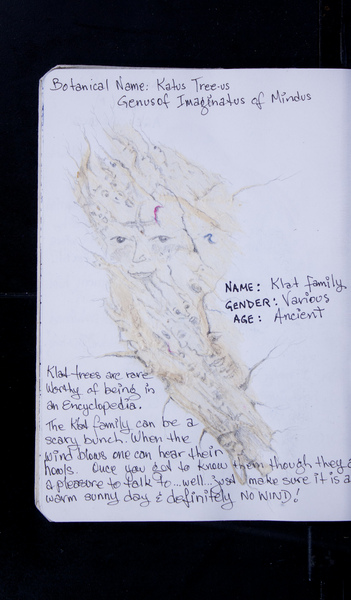 Botanical Name: Katus Tree-us
Genus of Imaginatus of Mindus
NAME: Klat family
GENDER: Various
AGE: Ancient
Klat trees are rare
worthy of being in
an Encyclopedia.
The Klat family can be a
scary bunch. When the
wind blows one can hear their
howls. Once you get to know them though they a
a pleasure to talk to...well...just make sure it is a
warm sunny day & definitely NO WIND!